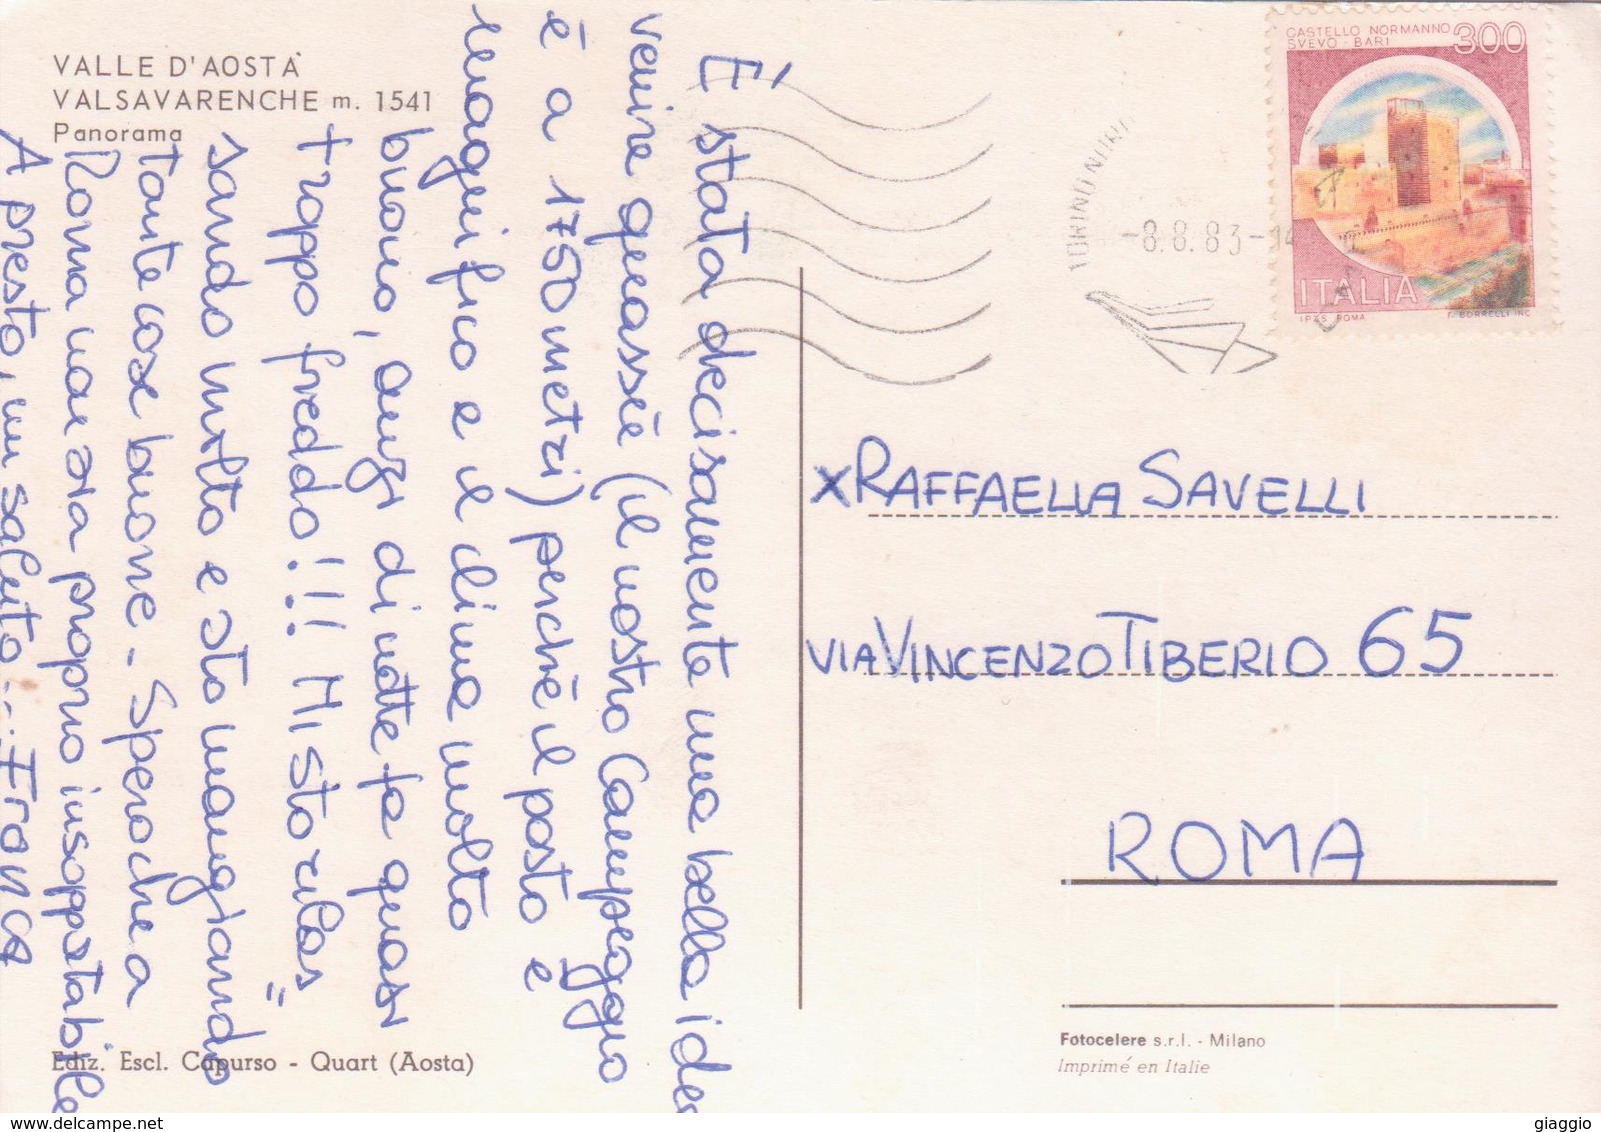 VALLE D'AOSTA
VALSAVARENCHE m. 1541
Panorama
È stata decisamente una bella idea
venire quassù (il nostro campeggio
è a 1750 metri) perchè il posto è
magnifico e il clima molto
buono, anzi di notte fa quasi
troppo freddo!!! Mi sto rilas=
sando molto e sto mangiando
tante cose buone - Spero che a
Roma non sia proprio insopportabile
A presto, un saluto... Franca
Ediz. Escl. Capurso - Quart (Aosta)
CASTELLO NORMANNO
SVEVO - BARI
300
ITALIA
I.P.Z.S. ROMA
F. BORRELLI INC.
TORINO NORD
-8.8.83-14
x RAFFAELLA SAVELLI
VIA VINCENZO TIBERIO 65
ROMA
Fotocelere s.r.l. - Milano
Imprimé en Italie
giaggio